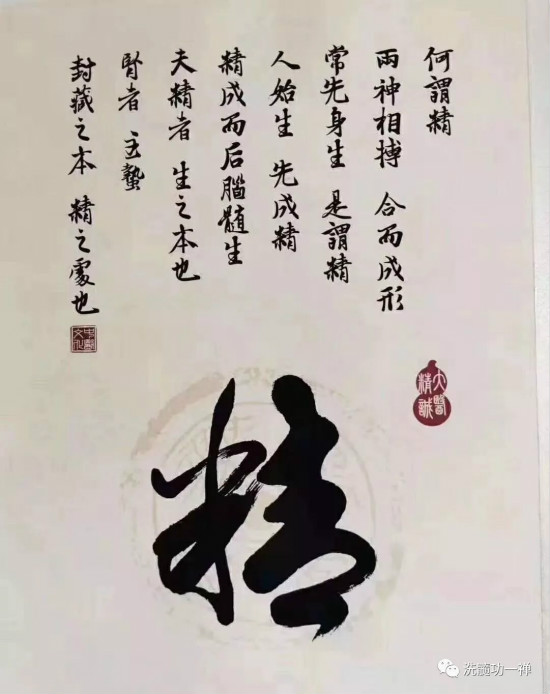 何謂精
兩神相搏 合而成形
常先身生 是謂精
人始生 先成精
精成而后腦髓生
夫精者 生之本也
腎者 主蟄
封藏之本 精之處也
大醫
精誠
精
洗髓功一禅